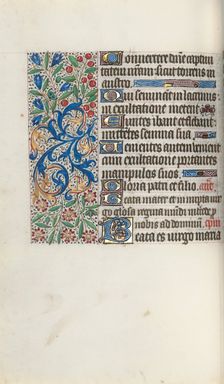 Converte dñe captivi
tatem nr̃am sicut torrens in
austro.
Qui seminant in lacrimis
in exultatione metent.
Euntes ibant et flebant
mittentes semina sua.
Venientes autem venient
cum exultatione portantes
manipulos suos.
Gloria patri et filio.
Beata mater et intacta vir
go gloriosa regina mundi intercede p
nobis ad dominũ.
Beata es virgo maria